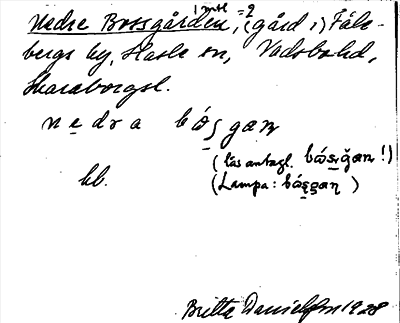 1 mtl = 2
Nedre Bossgården, (gård i) Fåle-
bergs by, Hasle sn, Vadsbohd,
Skaraborgsl.
nedra bósgæn
(läs antagl. bósgæn !)
bb. (Lampa: bósgan )
Britta Danielson 1928